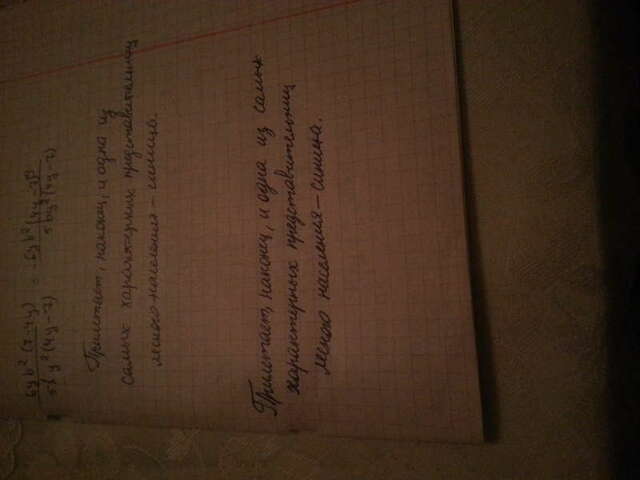 6yb²(7-4y) = -6yb²(4y-7)
5by²(4y-7) 5by²(4y-7)
Прилетает, наконец, и одна из
самых характерных представительниц
лесного населения – синица.
Прилетает, наконец, и одна из самых
характерных представительниц
лесного населения – синица.